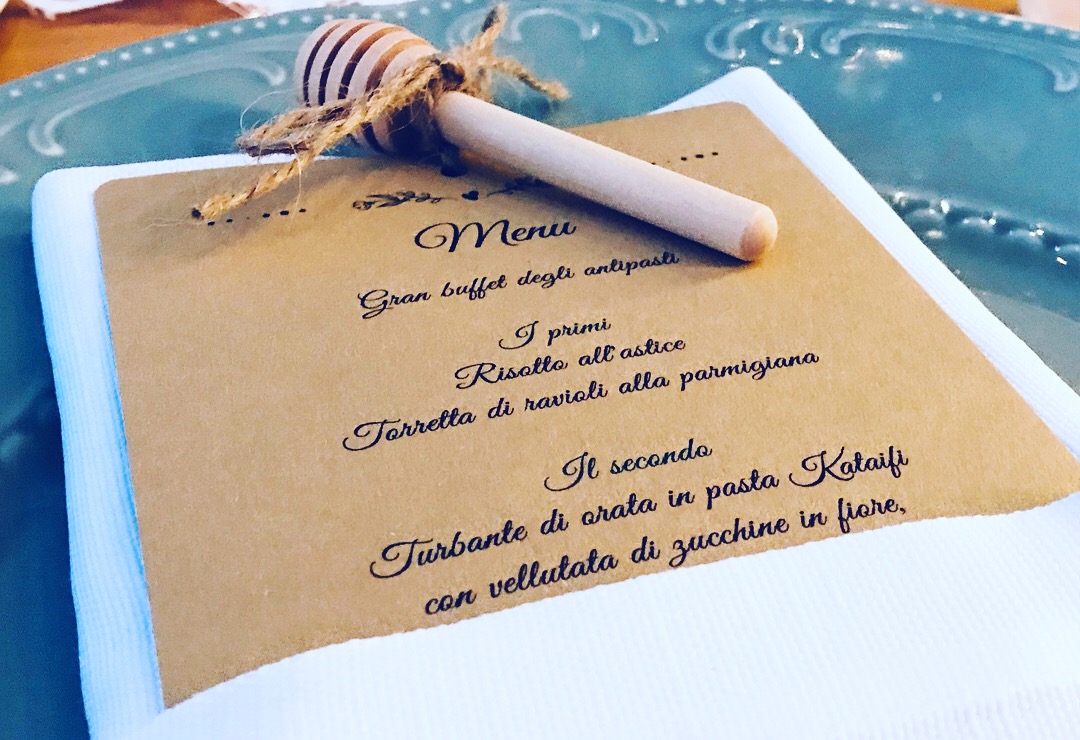 Menu
Gran buffet degli antipasti
I primi
Risotto all'astice
Torretta di ravioli alla parmigiana
Il secondo
Turbante di orata in pasta Kataifi
con vellutata di zucchine in fiore,